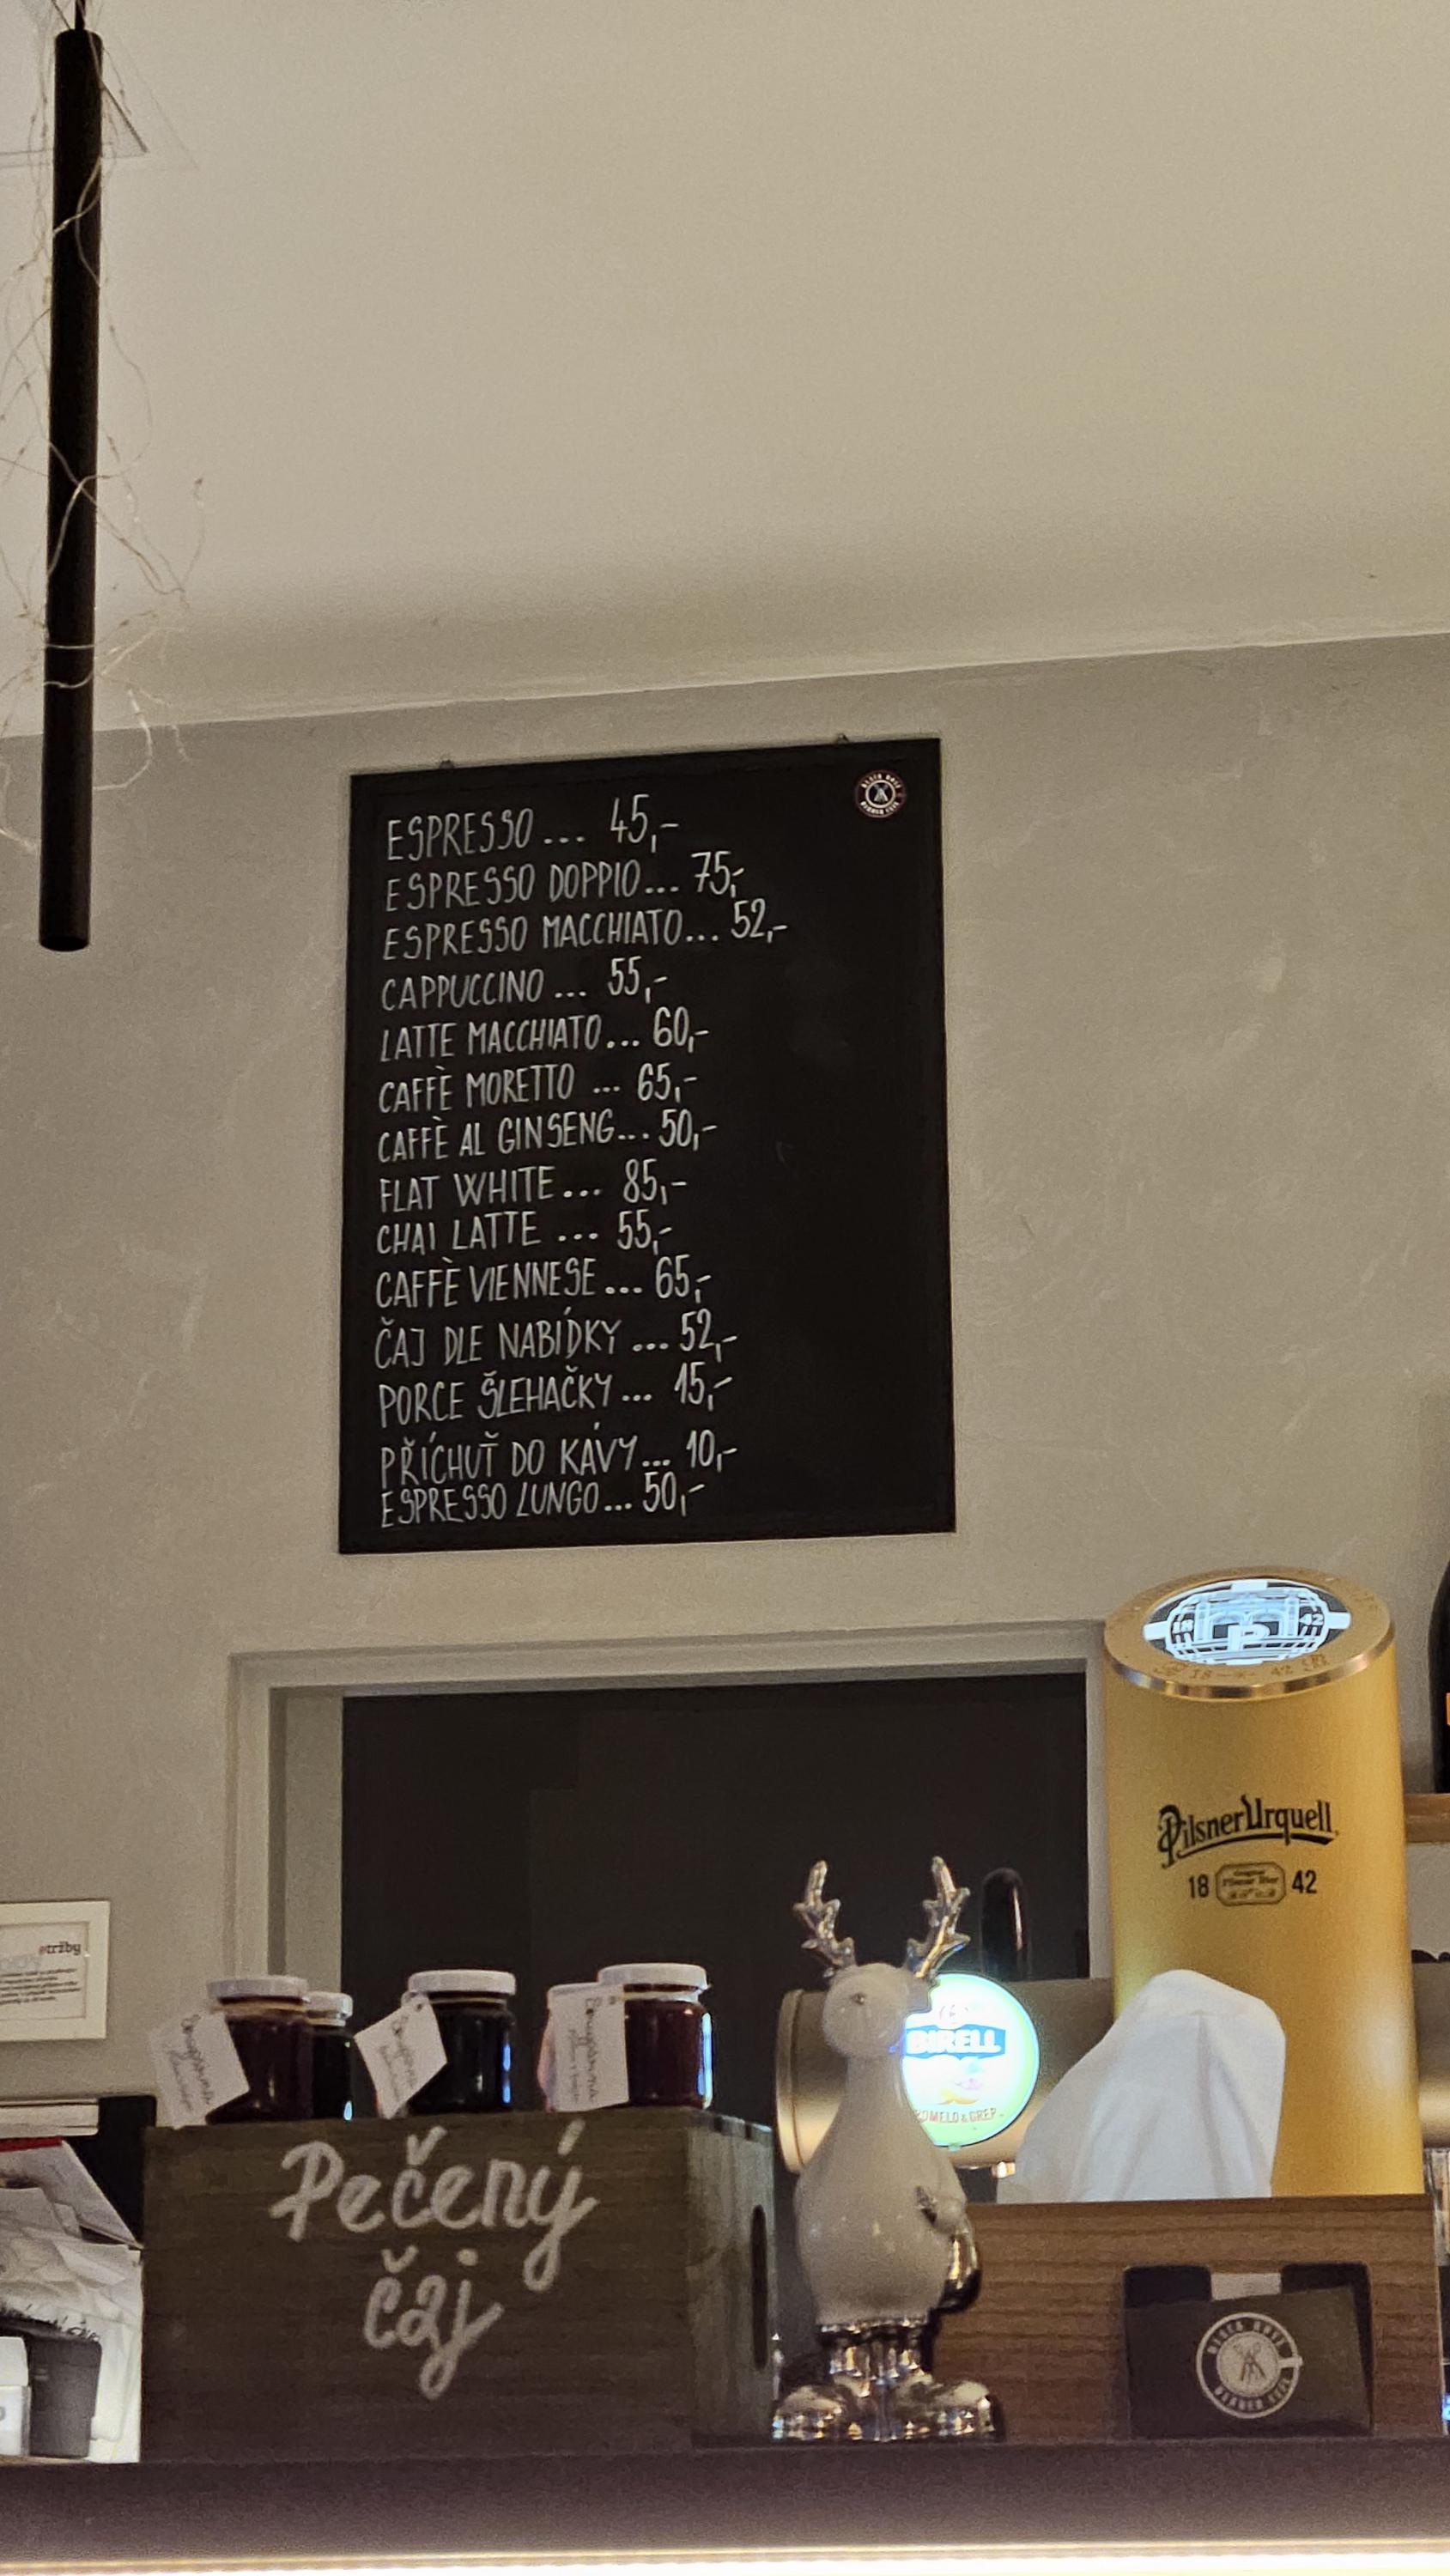 ESPRESSO ... 45,-
ESPRESSO DOPPIO... 75,-
ESPRESSO MACCHIATO... 52,-
CAPPUCCINO ... 55,-
LATTE MACCHIATO... 60,-
CAFFÈ MORETTO ... 65,-
CAFFÈ AL GINSENG... 50,-
FLAT WHITE... 85,-
CHAI LATTE ... 55,-
CAFFÈ VIENNESE... 65,-
ČAJ DLE NABÍDKY ... 52,-
PORCE ŠLEHAČKY... 15,-
PŘÍCHUŤ DO KÁVY... 10,-
ESPRESSO LUNGO... 50,-
18 42
PilsnerUrquell
18 42
etržby
BIRELL
POMELO & GREP
Pečený
čaj